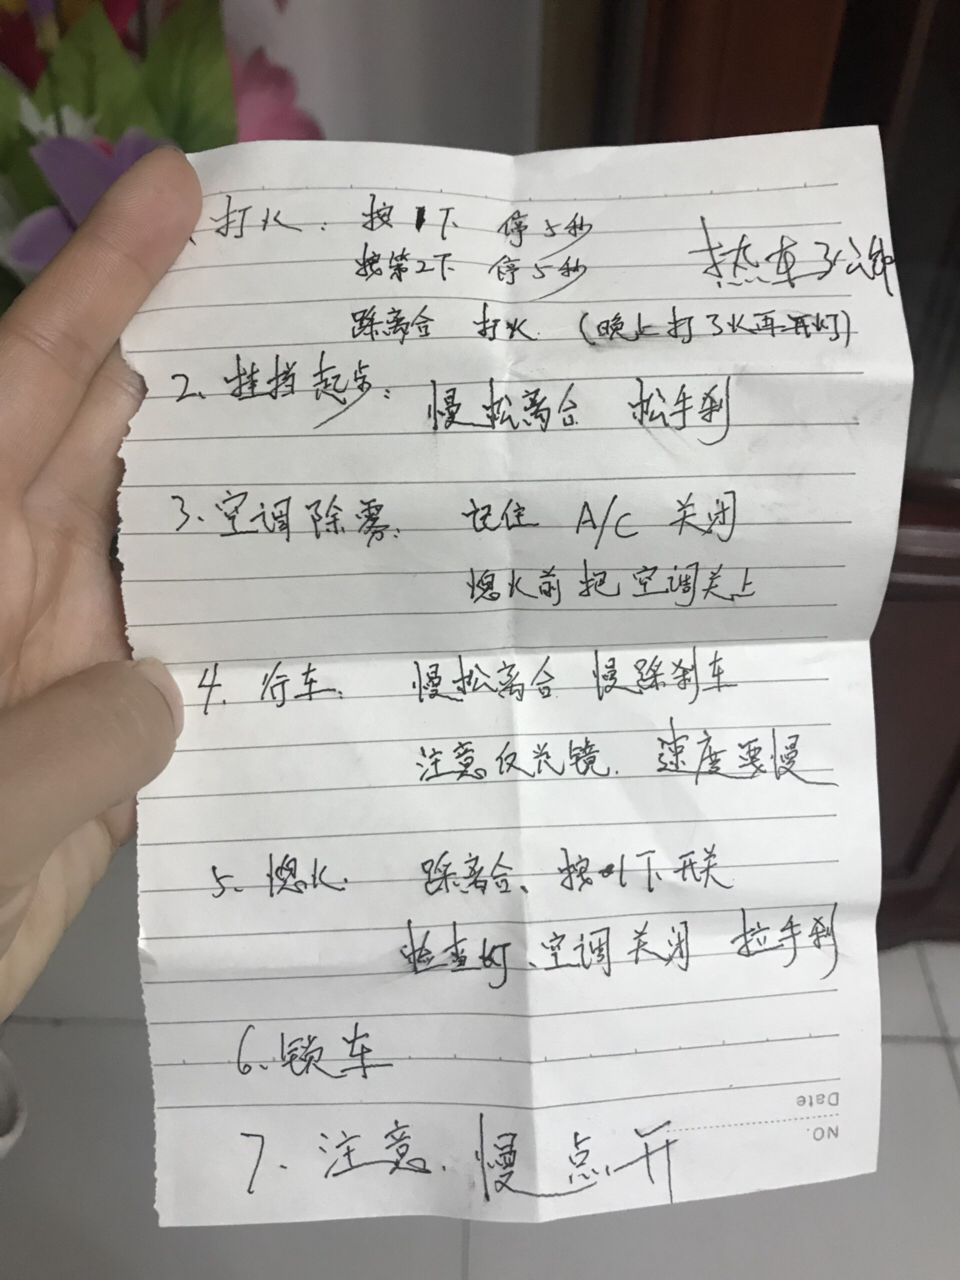 、打火： 按1下 停5秒
按第2下 停5秒 热车3分钟
踩离合 打火.（晚上打了火再开灯）
2、挂挡起步： 慢松离合 松手刹
3、空调除雾： 记住 A/C 关闭
熄火前把空调关上
4、行车： 慢松离合 慢踩刹车
注意反光镜. 速度要慢
5、熄火. 踩离合、按1下开关
检查灯、空调关闭 拉手刹
6、锁车
7、注意、慢点开
Date
NO.